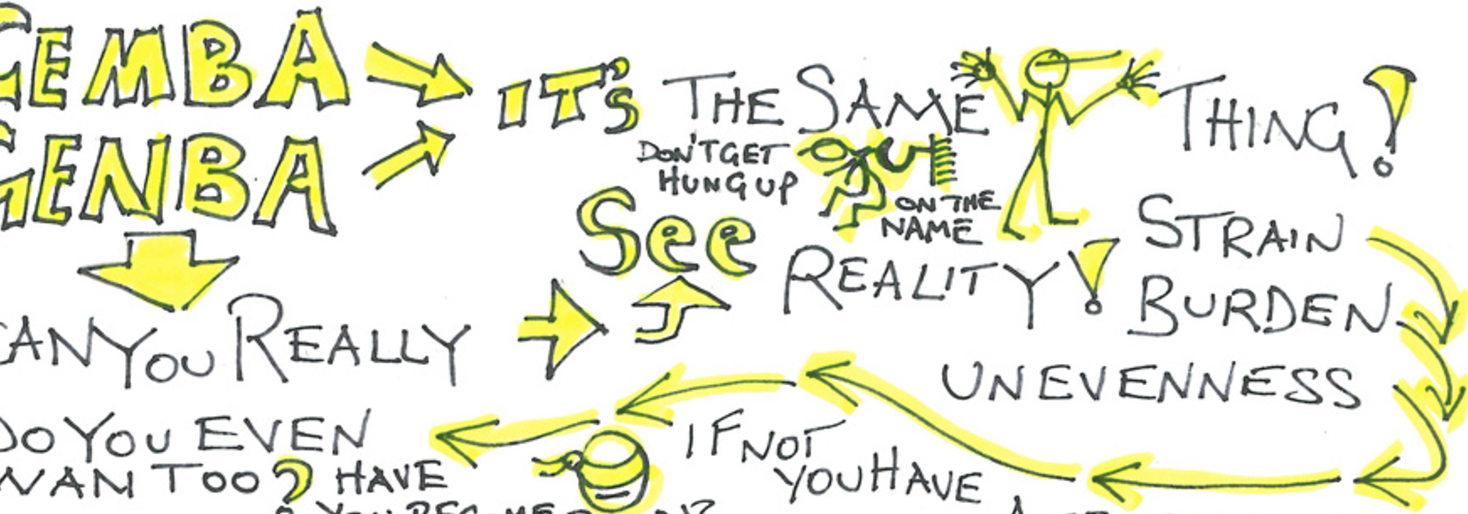 GEMBA
GENBA
IT'S THE SAME THING!
DON'T GET
HUNG UP
ON THE
NAME
CAN YOU REALLY
SEE REALITY!
STRAIN
BURDEN
UNEVENNESS
IF NOT
YOU HAVE
DO YOU EVEN
WANT TOO?
HAVE